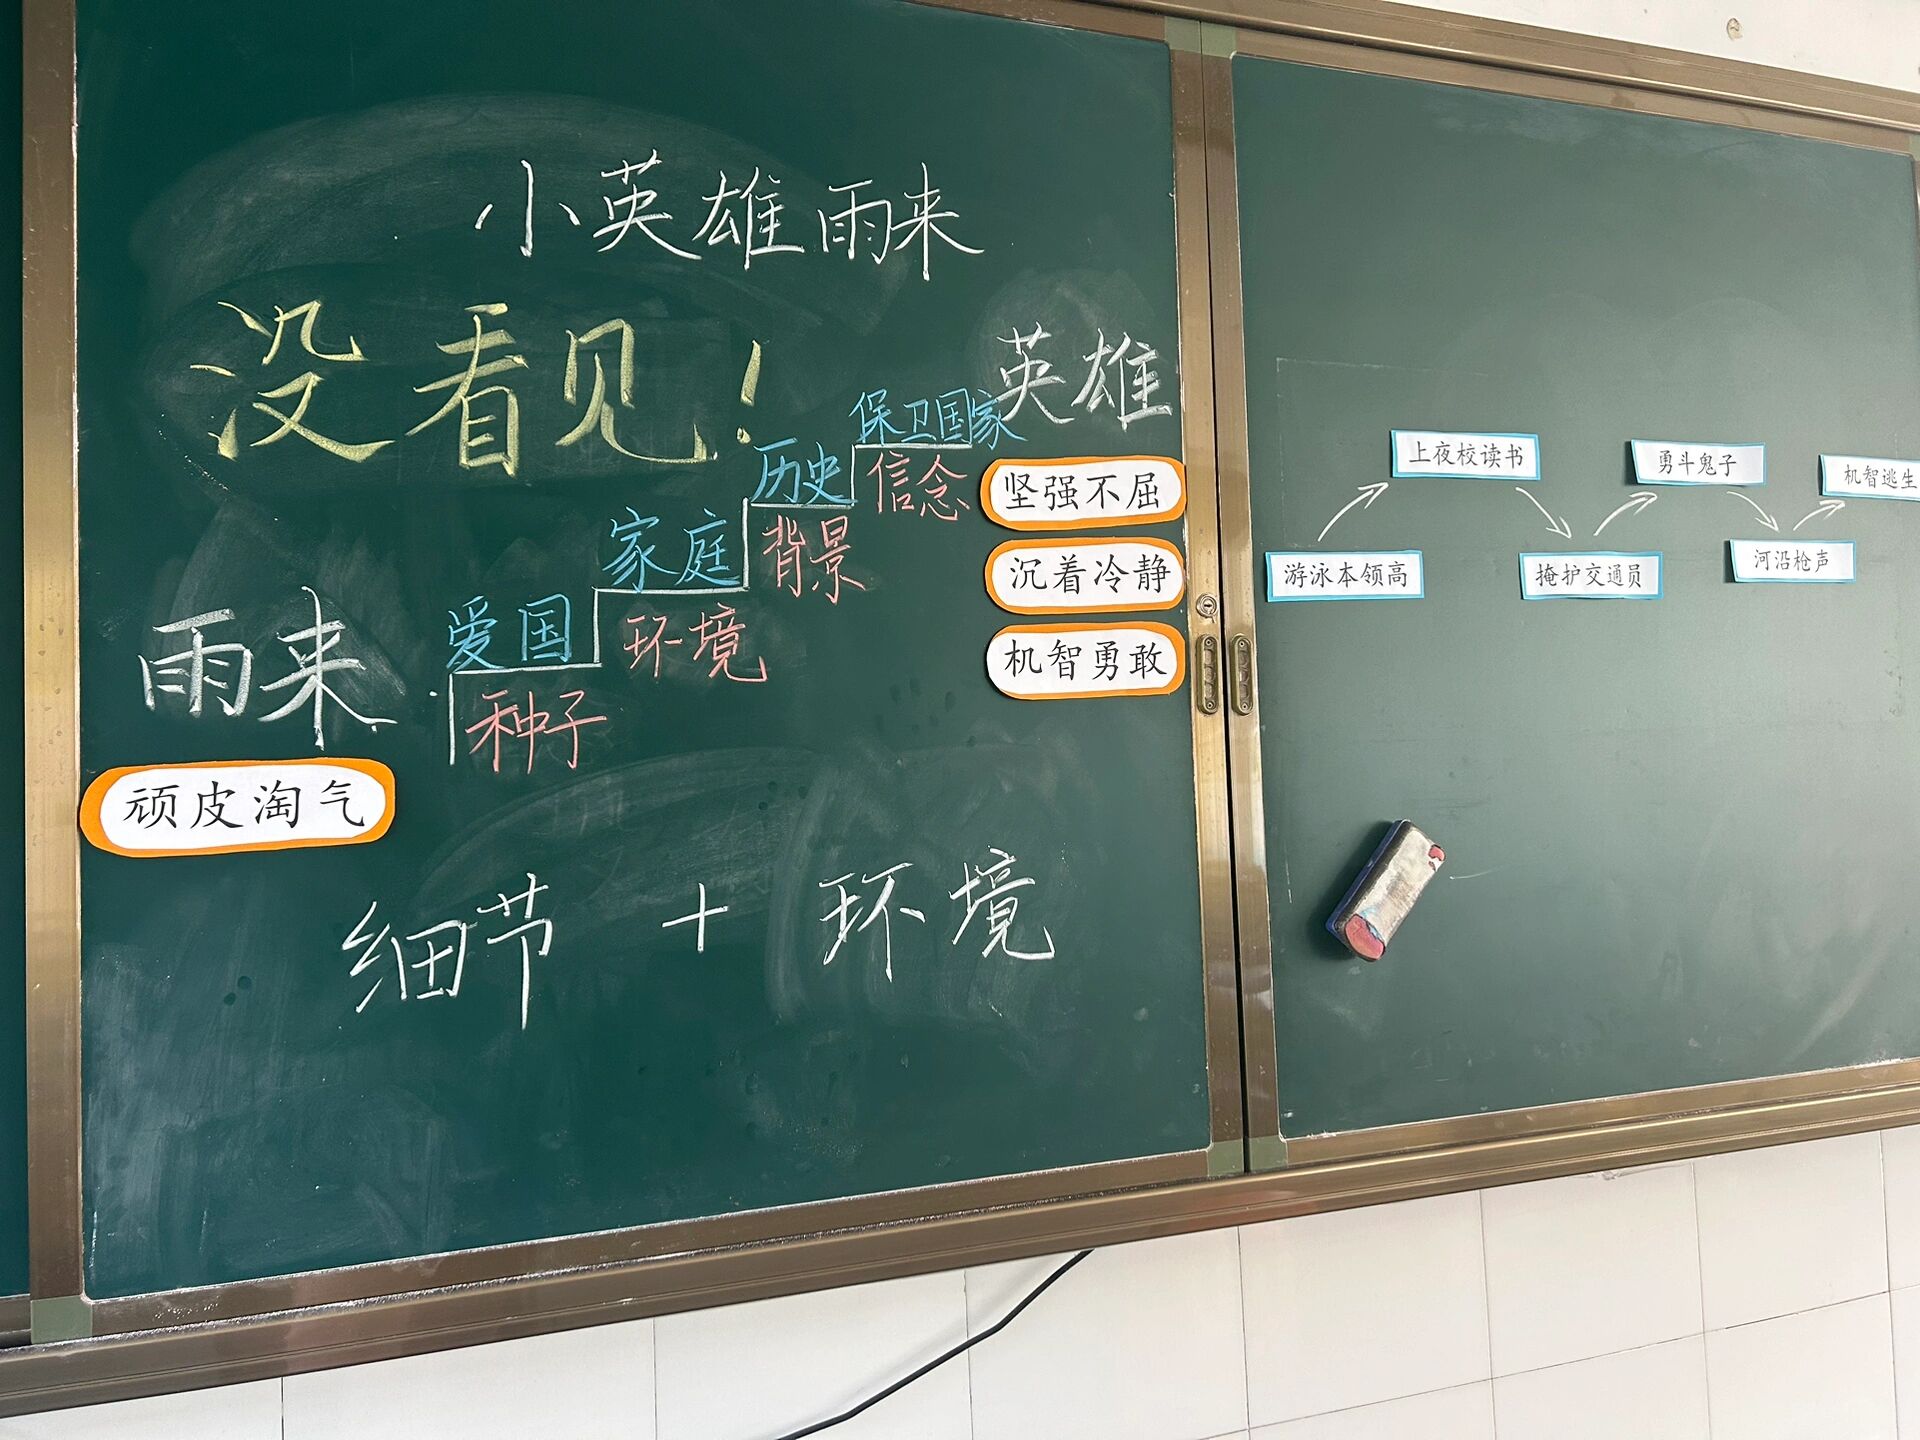 小英雄雨来
没看见!
英雄
保卫国家
信念
历史
背景
家庭
环境
爱国
种子
雨来
顽皮淘气
坚强不屈
沉着冷静
机智勇敢
细节 + 环境
游泳本领高
上夜校读书
掩护交通员
勇斗鬼子
河沿枪声
机智逃生